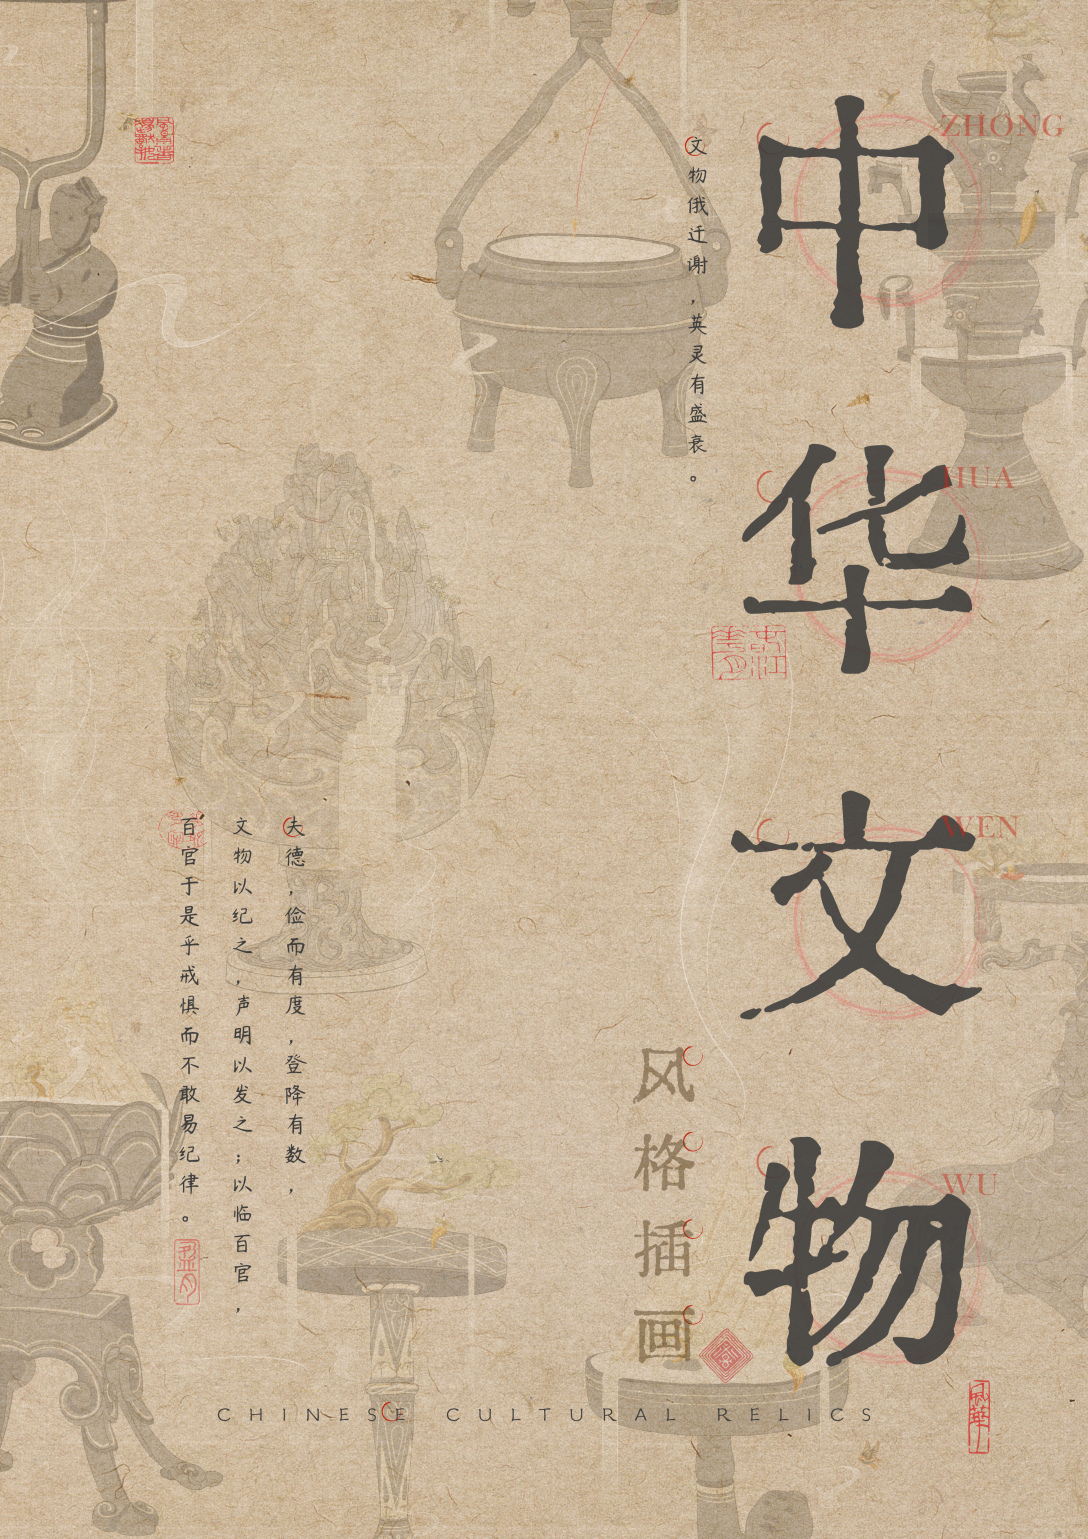 中华文物
ZHONG
HUA
WEN
WU
文物俄迁谢，英灵有盛衰。
风格插画
夫德，俭而有度，登降有数，
文物以纪之，声明以发之；以临百官，
百官于是乎戒惧而不敢易纪律。
CHINESE CULTURAL RELICS